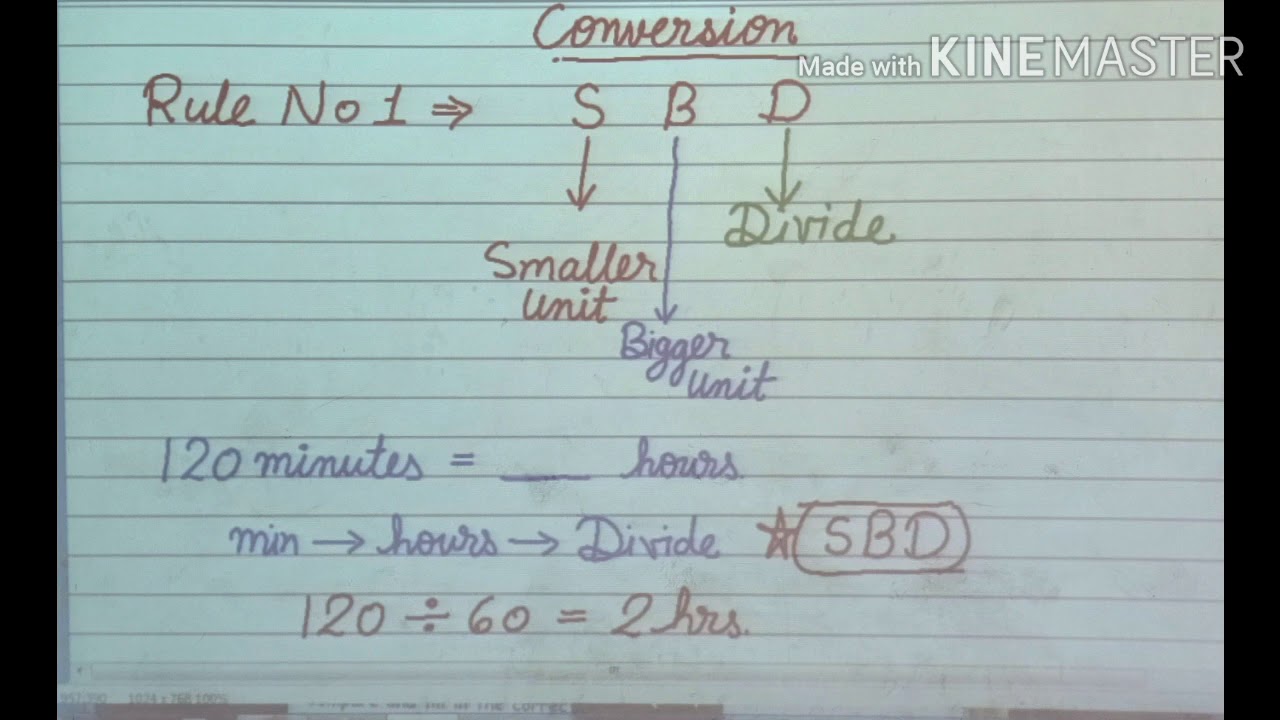 Conversion
Made with KINEMASTER
Rule No 1 ⇒ S B D
Divide
Smaller
unit
Bigger
unit
120 minutes = ___ hours
min → hours → Divide ☆ SBD
120 ÷ 60 = 2 hrs.
1024 x 768 100%